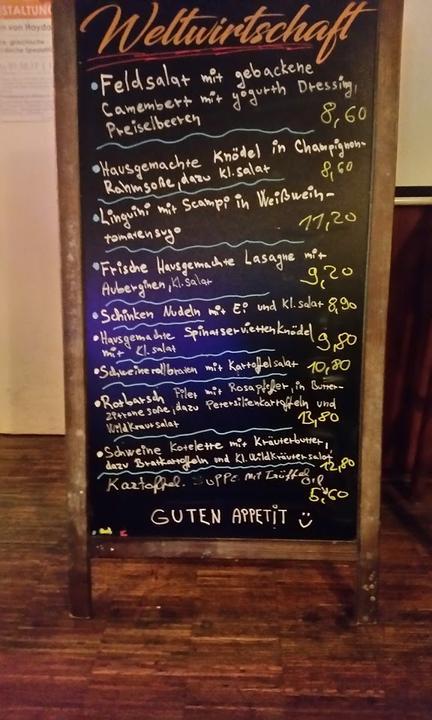 STALTUNG
Weltwirtschaft
• Feldsalat mit gebackene
Camembert mit yogurth Dressing,
Preiselbeeren 8,60
• Hausgemachte Knödel in Champignon-
Rahmsoße, dazu kl. salat 8,60
• Linguini mit Scampi in Weißwein-
tomatensugo 11,20
• Frische Hausgemachte Lasagne mit
Auberginen, kl. salat 9,20
• Schinken Nudeln mit Ei und kl. salat 8,90
• Hausgemachte Spinatserviettenknödel
mit kl. salat 9,80
• Schweinerollbraten mit Kartoffelsalat 10,80
• Rotbarsch Filet mit Rosapfeffer, in Butter-
zitrone soße, dazu Petersilienkartoffeln und
Wildkrautsalat 13,80
• Schweine Kotelette mit Kräuterbutter,
dazu Bratkartoffeln und kl. Wildkräutersalat 12,80
Kartoffel. Suppe mit Trüffel öl
5,60
GUTEN APPETIT